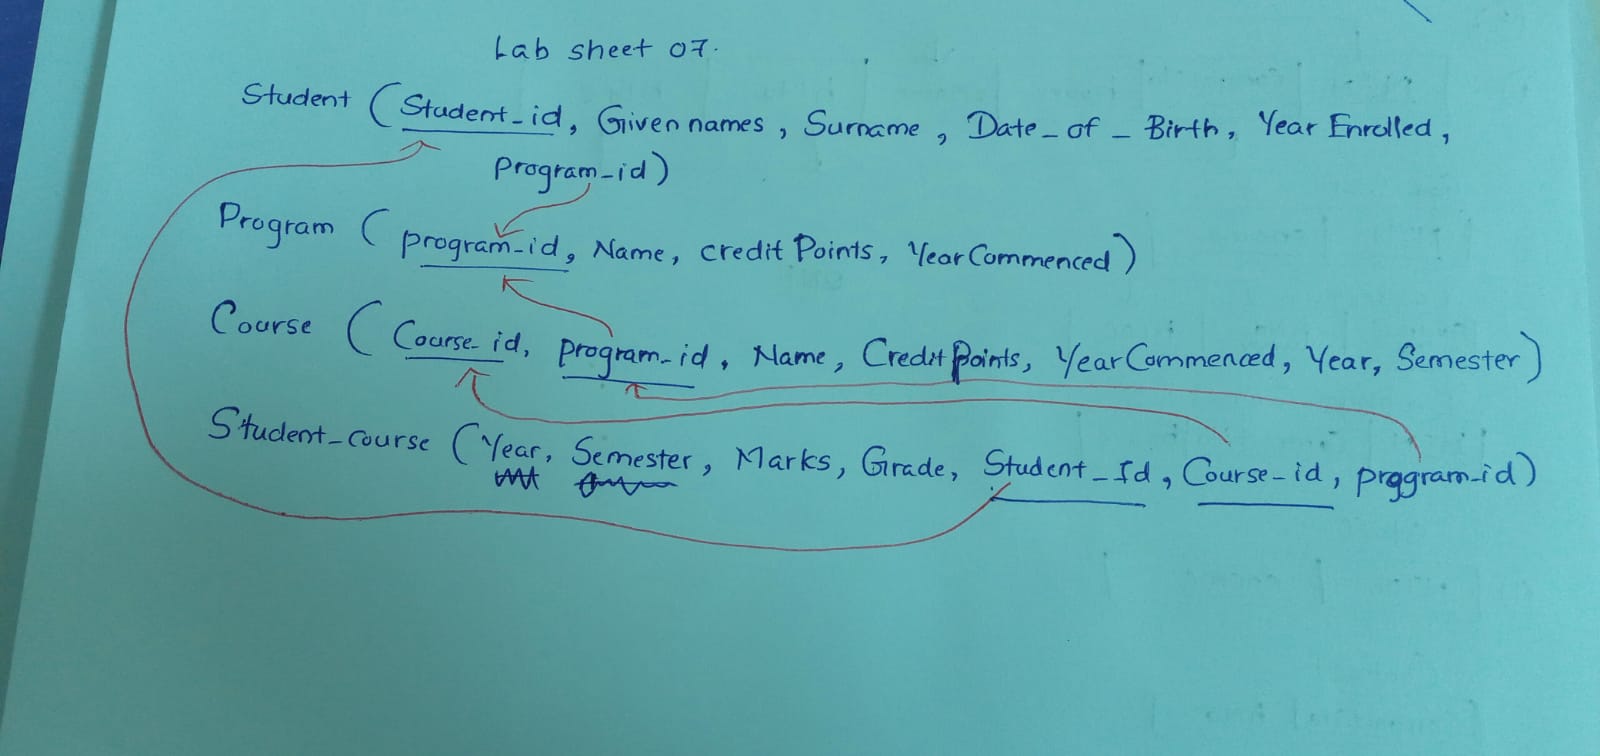 Lab sheet 07.
Student (Student_id, Given names, Surname, Date_of_Birth, Year Enrolled,
Program_id)
Program (program_id, Name, credit Points, Year Commenced)
Course (Course_id, program_id, Name, Credit Points, Year Commenced, Year, Semester)
Student_course (Year, Semester, Marks, Grade, Student_Id, Course_id, proggram_id)